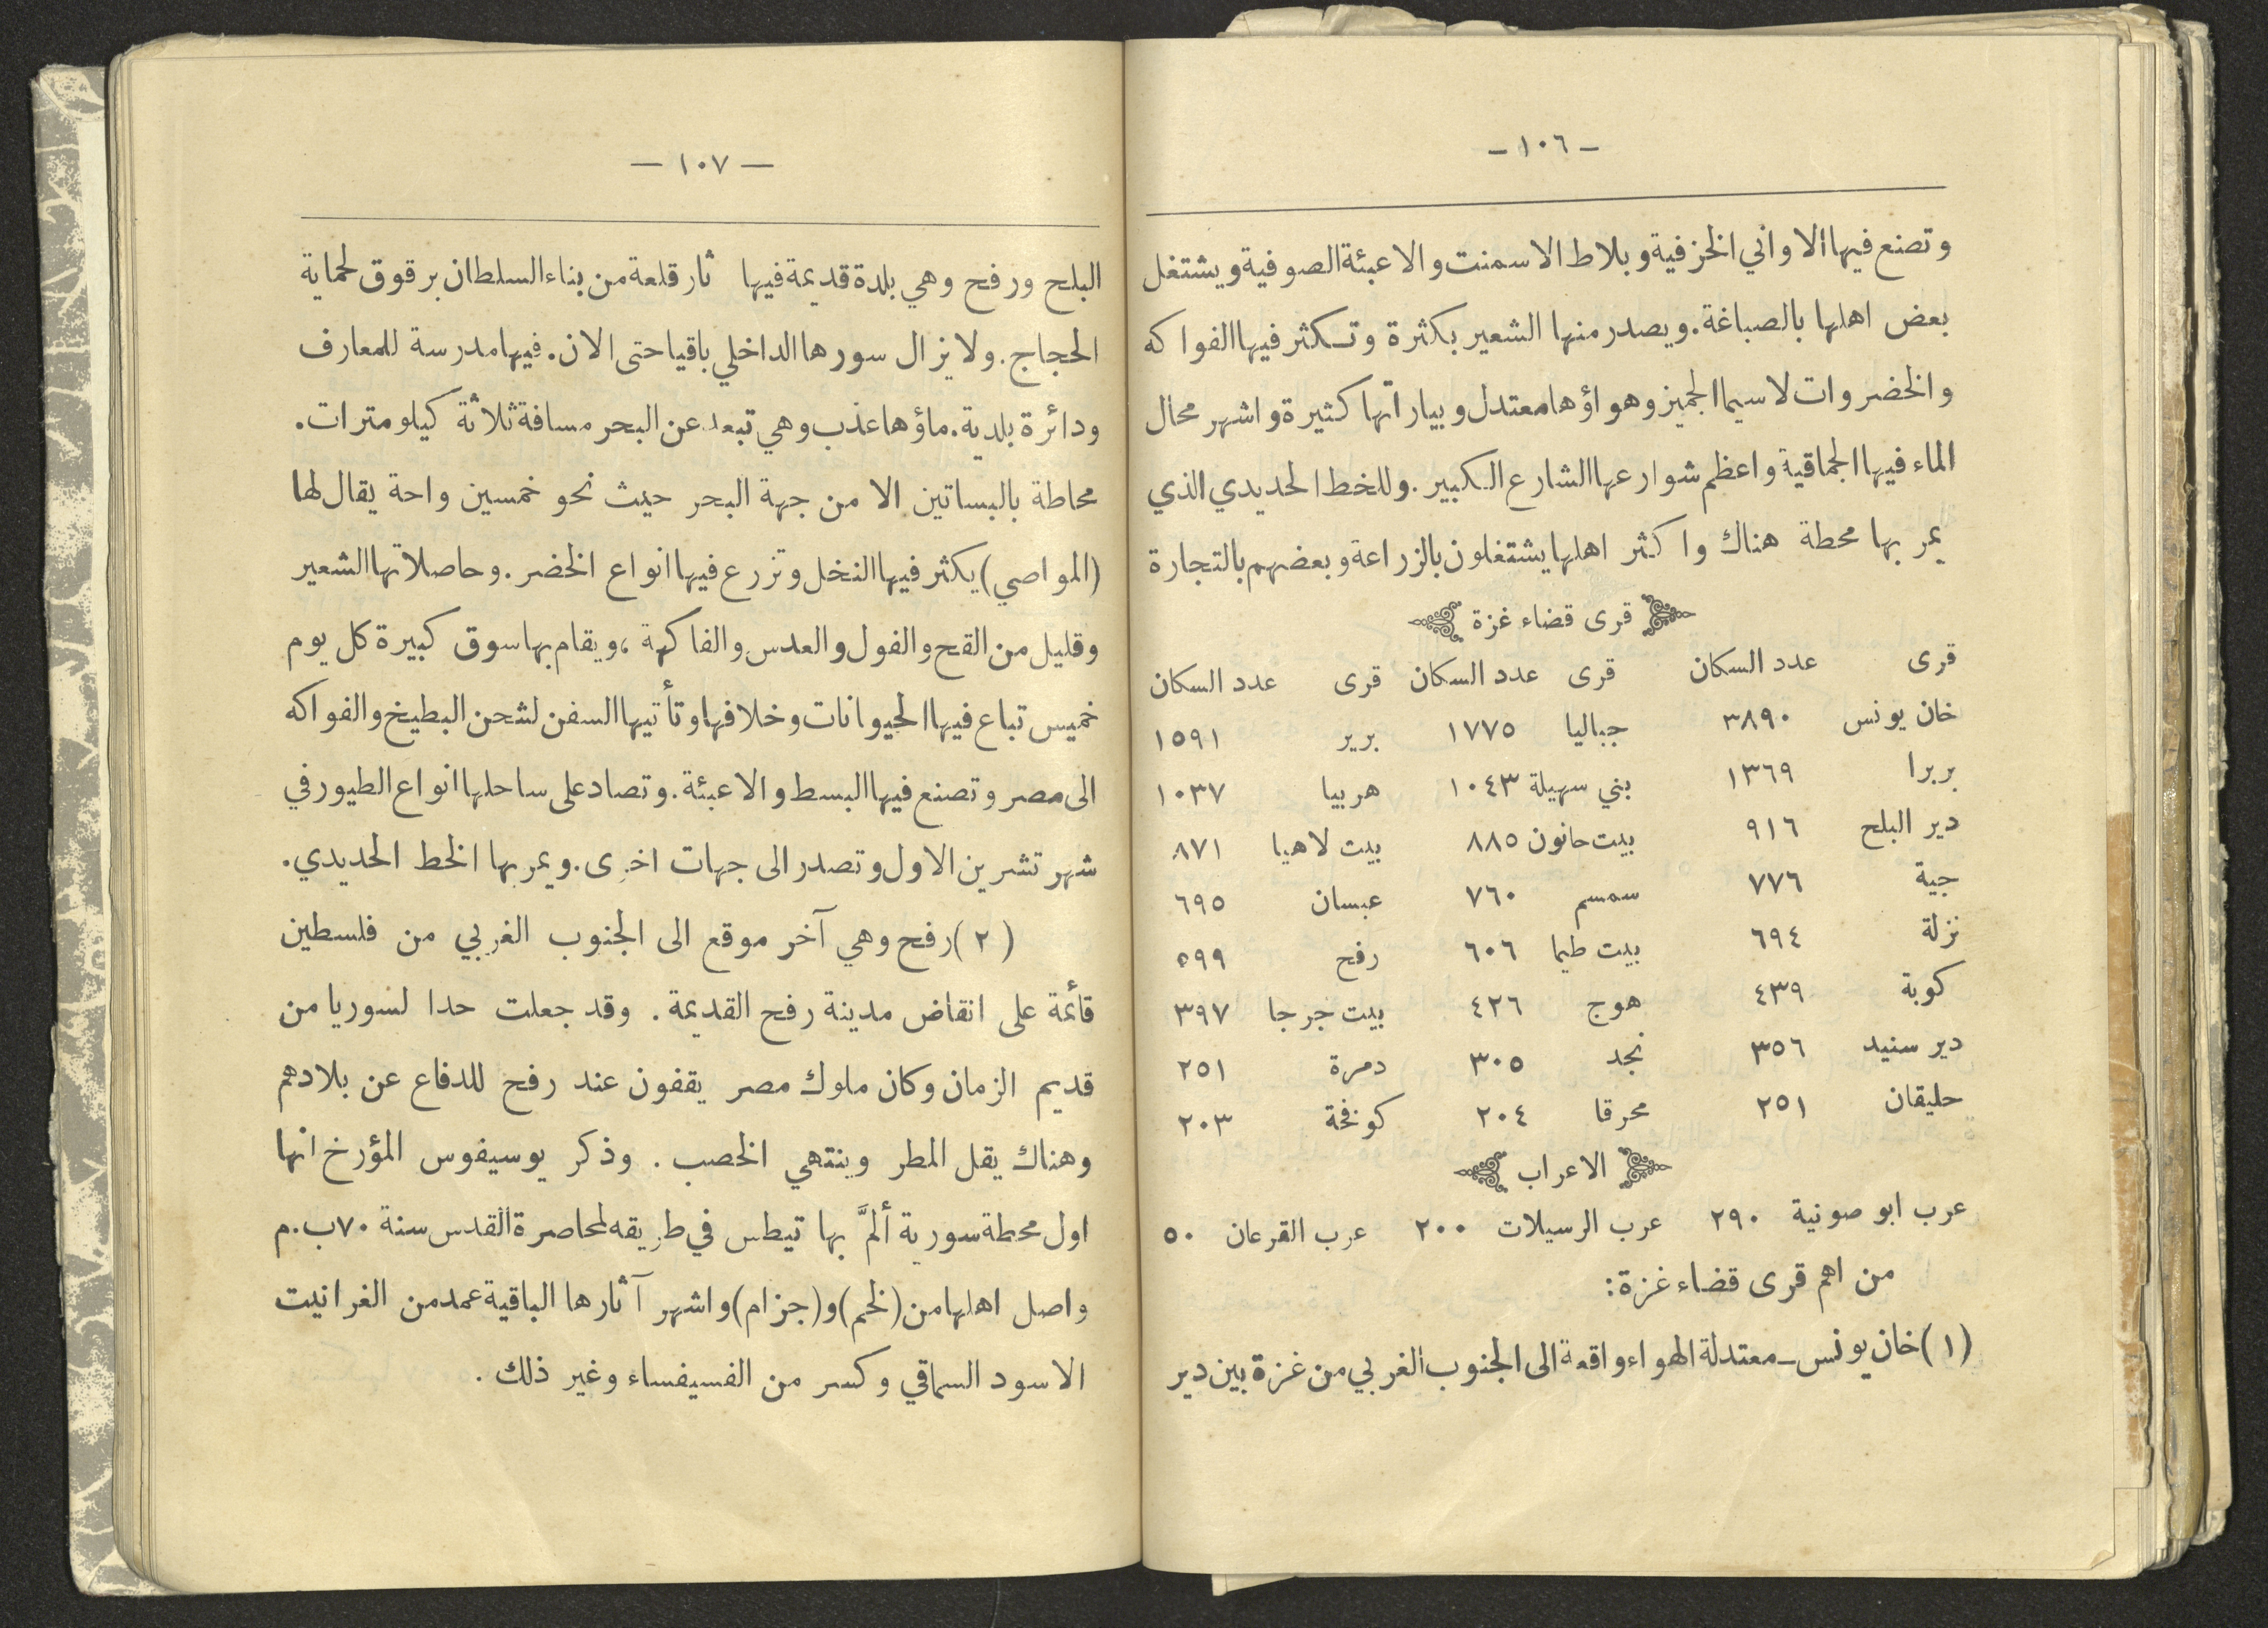 - ١٠٦ -
وتصنع فيها الاواني الخزفية وبلاط الاسمنت والاعبئة الصوفية ويشتغل
بعض اهلها بالصباغة. ويصدر منها الشعير بكثرة وتكثر فيها الفواكه
والخضروات لاسيما الجميز وهواؤها معتدل وبياراتها كثيرة واشهر محال
الماء فيها الجماقية واعظم شوارعها الشارع الكبير. وللخط الحديدي الذي
يمر بها محطة هناك واكثر اهلها يشتغلون بالزراعة وبعضهم بالتجارة
قرى قضاء غزة
قرى عدد السكان قرى عدد السكان قرى عدد السكان
خان يونس ٣٨٩٠ جباليا ١٧٧٥ برير ١٥٩١
بربرا ١٣٦٩ بني سهيلة ١٠٤٣ هربيا ١٠٣٧
دير البلح ٩١٦ بيت حانون ٨٨٥ بيت لاهيا ٨٧١
جية ٧٧٦ سمسم ٧٦٠ عبسان ٦٩٥
نزلة ٦٩٤ بيت طيما ٦٠٦ رفح ٥٩٩
كوبة ٤٣٩ هوج ٤٢٦ بيت جرجا ٣٩٧
دير سنيد ٣٥٦ نجد ٣٠٥ دمرة ٢٥١
حليقان ٢٥١ محرقا ٢٠٤ كوفخة ٢٠٣
الاعراب
عرب ابو صونية ٢٩٠ عرب الرسيلات ٢٠٠ عرب القرعان ٥٠
من اهم قرى قضاء غزة:
(١) خان يونس - معتدلة الهواء واقعة الى الجنوب الغربي من غزة بين دير
— ١٠٧ —
البلح ورفح وهي بلدة قديمة فيها ثار قلعة من بناء السلطان برقوق لحماية
الحجاج. ولا يزال سورها الداخلي باقيا حتى الان. فيها مدرسة للمعارف
ودائرة بلدية. ماؤها عذب وهي تبعد عن البحر مسافة ثلاثة كيلو مترات.
محاطة بالبساتين الا من جهة البحر حيث نحو خمسين واحة يقال لها
(المواصي) يكثر فيها النخل وتزرع فيها انواع الخضر. وحاصلاتها الشعير
وقليل من القمح والفول والعدس والفاكهة، ويقام بها سوق كبيرة كل يوم
خميس تباع فيها الحيوانات وخلافها وتأتيها السفن لشحن البطيخ والفواكه
الى مصر وتصنع فيها البسط والاعبئة. وتصاد على ساحلها انواع الطيور في
شهر تشرين الاول وتصدر الى جهات اخرى. ويمر بها الخط الحديدي.
(٢) رفح وهي آخر موقع الى الجنوب الغربي من فلسطين
قائمة على انقاض مدينة رفح القديمة. وقد جعلت حدا لسوريا من
قديم الزمان وكان ملوك مصر يقفون عند رفح للدفاع عن بلادهم
وهناك يقل المطر وينتهي الخصب. وذكر يوسيفوس المؤرخ انها
اول محطة سورية ألمَّ بها تيطس في طريقه لمحاصرة القدس سنة ٧٠ ب.م
واصل اهلها من (لخم) و(جزام) واشهر آثارها الباقية عمد من الغرانيت
الاسود السماقي وكسر من الفسيفساء وغير ذلك.